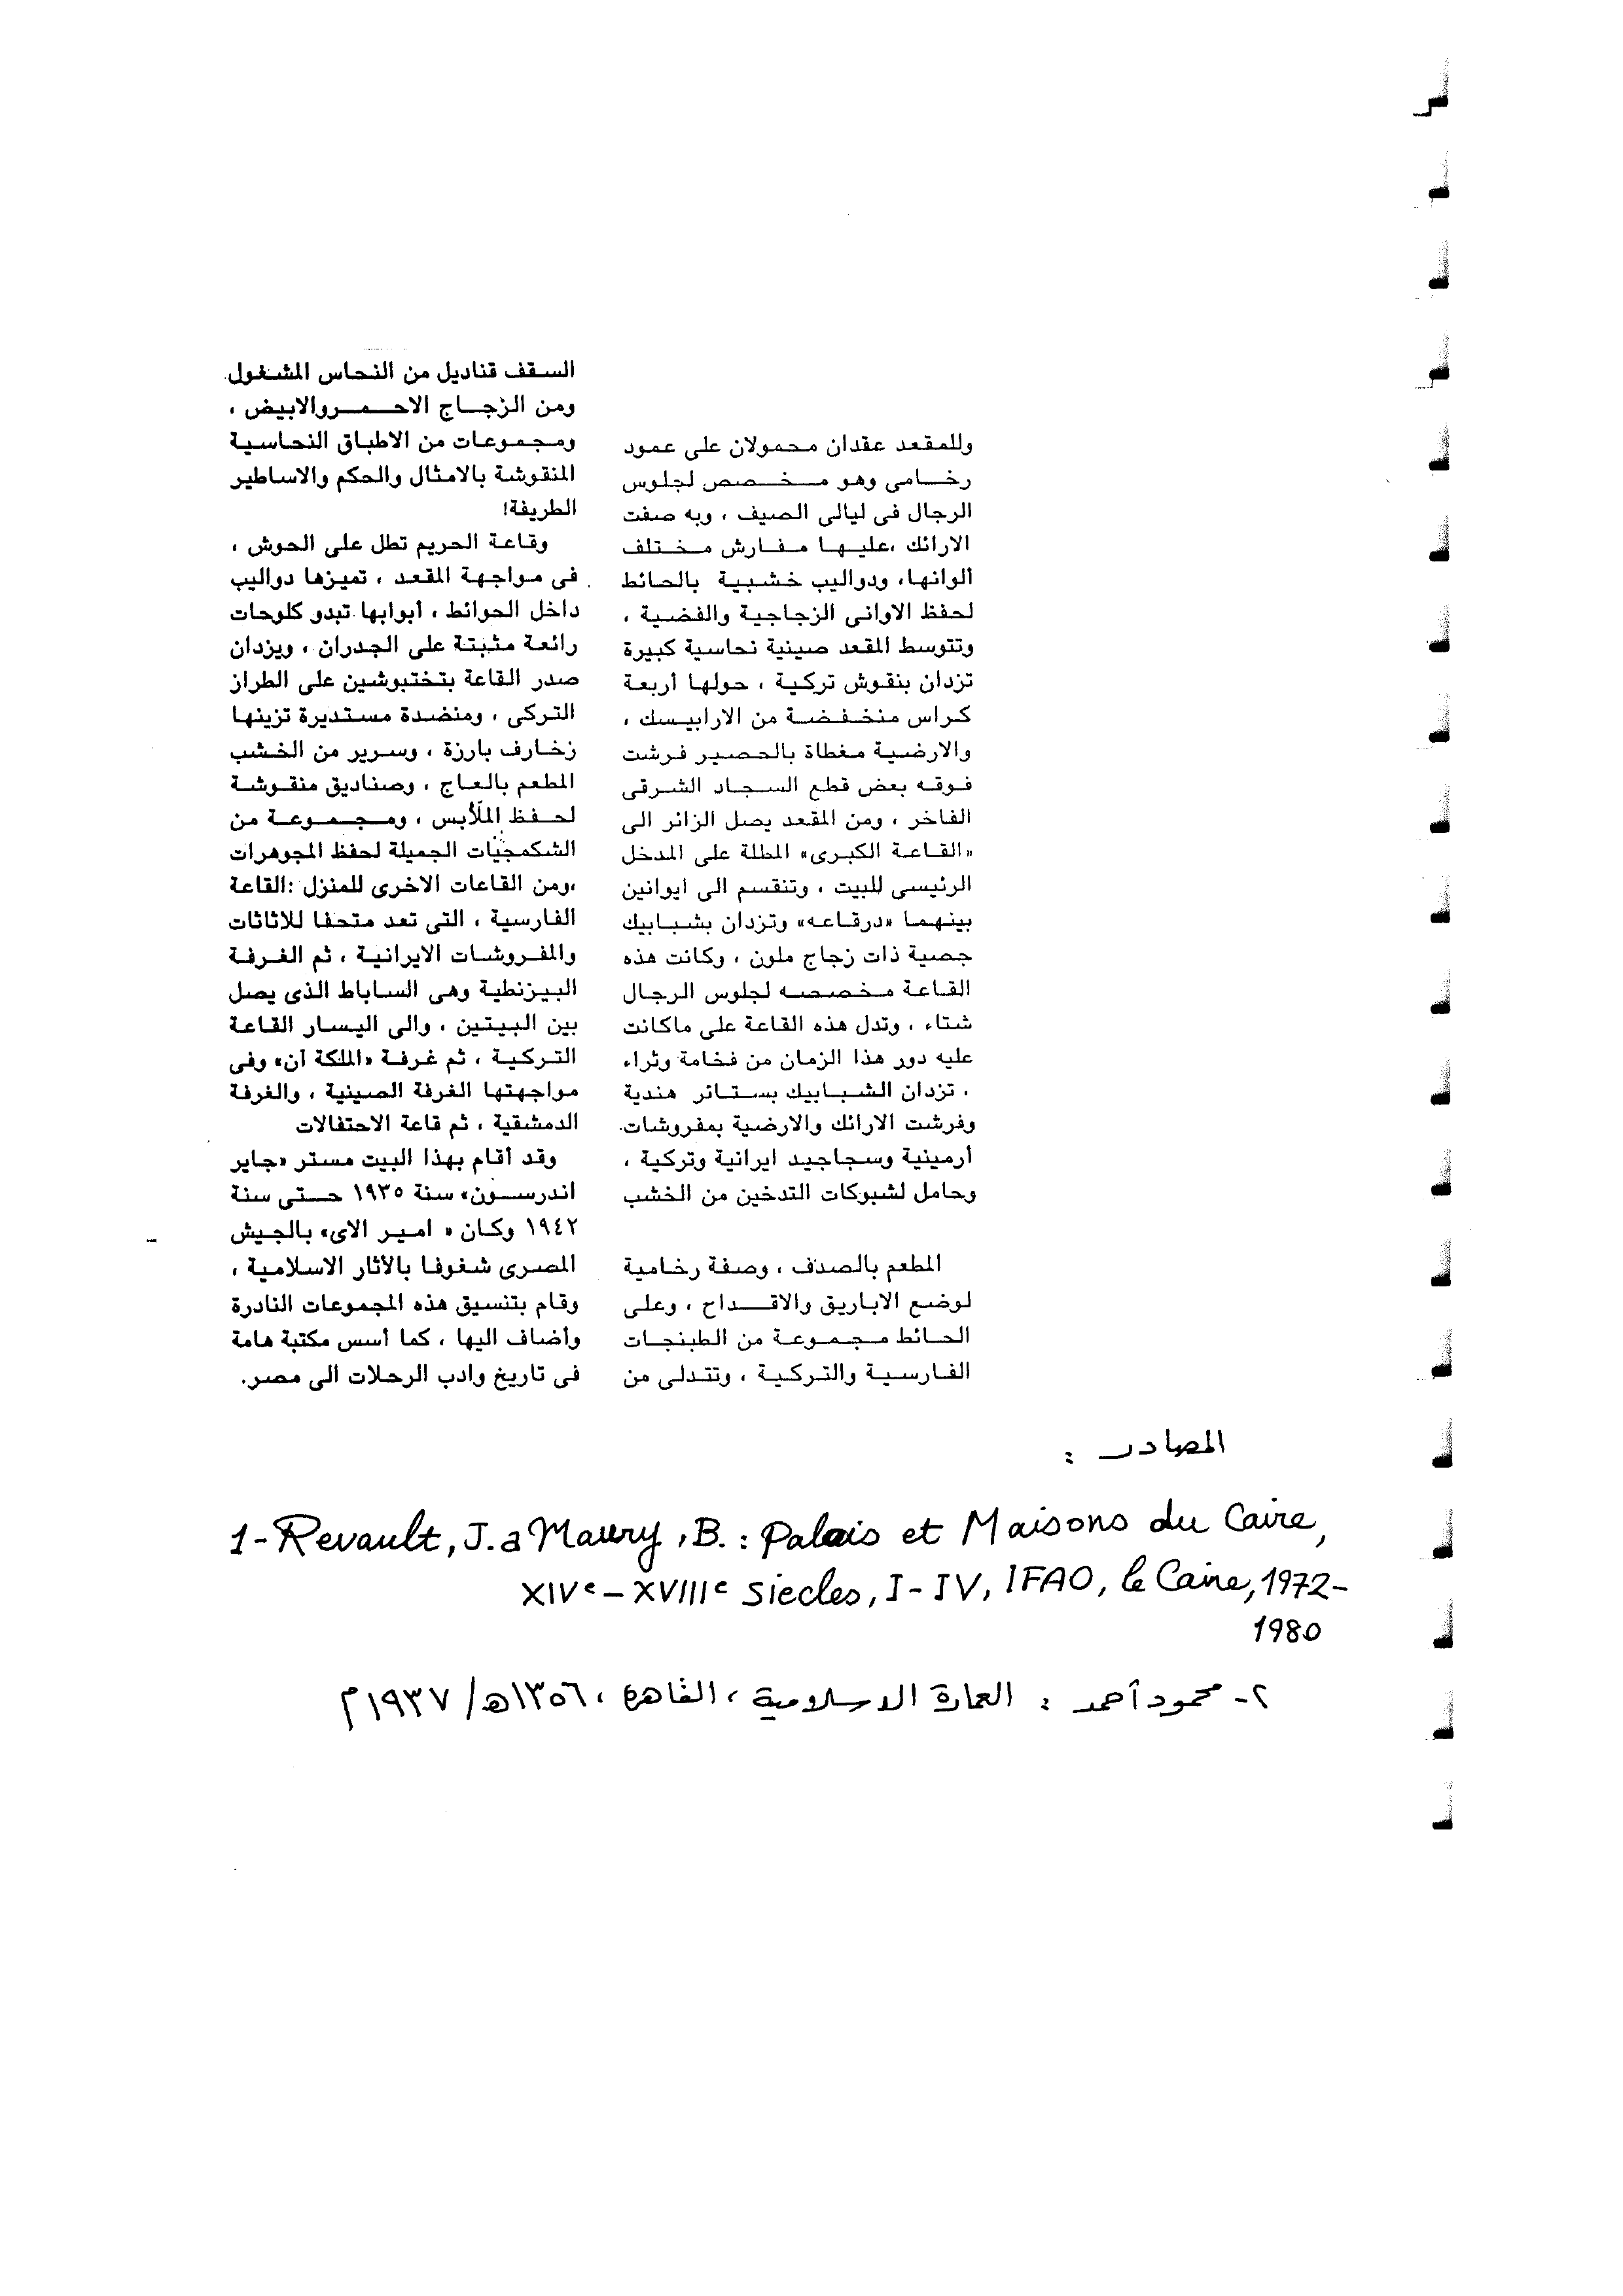 وللمقعد عقدان محمولان على عمود
رخامى وهو مخصص لجلوس
الرجال فى ليالى الصيف ، وبه صفت
الارائك ،عليها مفارش مختلف
ألوانها، ودواليب خشبية بالحائط
لحفظ الاوانى الزجاجية والفضية ،
وتتوسط المقعد صينية نحاسية كبيرة
تزدان بنقوش تركية ، حولها أربعة
كراس منخفضة من الارابيسك ،
والارضية مغطاة بالحصير فرشت
فوقه بعض قطع السجاد الشرقى
الفاخر ، ومن المقعد يصل الزائر الى
«القاعة الكبرى» المطلة على المدخل
الرئيسى للبيت ، وتنقسم الى ايوانين
بينهما «درقاعه» وتزدان بشبابيك
جصية ذات زجاج ملون ، وكانت هذه
القاعة مخصصه لجلوس الرجال
شتاء ، وتدل هذه القاعة على ماكانت
عليه دور هذا الزمان من فخامة وثراء
، تزدان الشبابيك بستائر هندية
وفرشت الارائك والارضية بمفروشات
أرمينية وسجاجيد ايرانية وتركية ،
وحامل لشبوكات التدخين من الخشب
المطعم بالصدف ، وصفة رخامية
لوضع الاباريق والاقداح ، وعلى
الحائط مجموعة من الطبنجات
الفارسية والتركية ، وتتدلى من
السقف قناديل من النحاس المشغول
ومن الزجاج الاحمروالابيض ،
ومجموعات من الاطباق النحاسية
المنقوشة بالامثال والحكم والاساطير
الطريفة!
وقاعة الحريم تطل على الحوش ،
فى مواجهة المقعد ، تميزها دواليب
داخل الحوائط ، أبوابها تبدو كلوحات
رائعة مثبتة على الجدران ، ويزدان
صدر القاعة بتختبوشين على الطراز
التركى ، ومنضدة مستديرة تزينها
زخارف بارزة ، وسرير من الخشب
المطعم بالعاج ، وصناديق منقوشة
لحفظ الملابس ، ومجموعة من
الشكمجيات الجميلة لحفظ المجوهرات
،ومن القاعات الاخرى للمنزل :القاعة
الفارسية ، التى تعد متحفا للاثاثات
والمفروشات الايرانية ، ثم الغرفة
البيزنطية وهى الساباط الذى يصل
بين البيتين ، والى اليسار القاعة
التركية ، ثم غرفة «الملكة آن» وفى
مواجهتها الغرفة الصينية ، والغرفة
الدمشقية ، ثم قاعة الاحتفالات
وقد أقام بهذا البيت مستر «جاير
اندرسون» سنة ١٩٣٥ حتى سنة
١٩٤٢ وكان « امير الاى» بالجيش
المصرى شغوفا بالآثار الاسلامية ،
وقام بتنسيق هذه المجموعات النادرة
وأضاف اليها ، كما أسس مكتبة هامة
فى تاريخ وادب الرحلات الى مصر.
المصادر :
1- Revault, J. a Maury, B. : Palais et Maisons du Caire,
XIVe – XVIIIe siecles, I - IV, IFAO, le Caire, 1972-
1980
٢- محمود أحمد : العمارة الاسلامية ، القاهرة ، ١٣٥٦هـ/ ١٩٣٧م